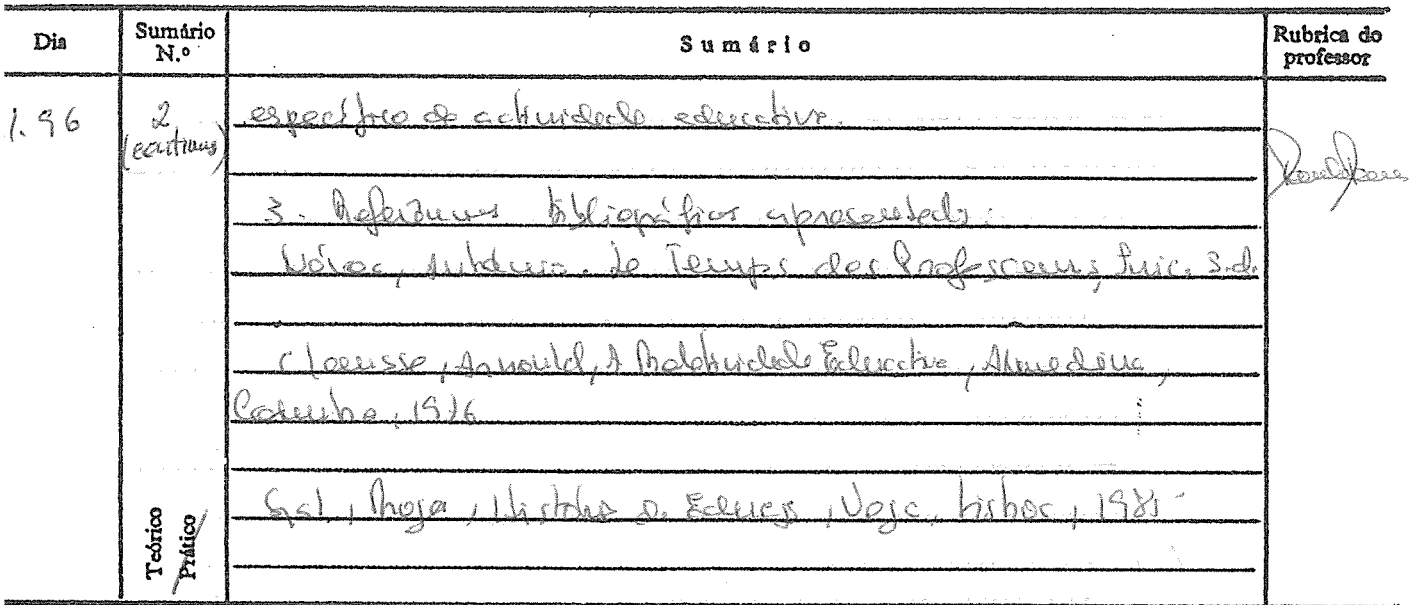 Dia
Sumário N.º
Sumário
Rubrica do professor
1.96
2
específico da actividade educativa.
3. Referências bibliográficas apresentadas:
Nóvoa, António. Le Temps des Professeurs, Inic. s.d.
Clausse, Arnould, A Relatividade Educativa, Almedina,
Coimbra, 1976
Gal, Roger, História da Educação, Vega, Lisboa, 198
Teórico
Prático